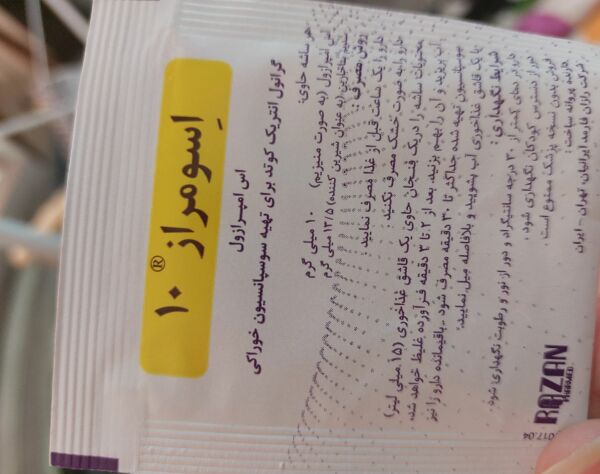 اِسومراز® ۱۰
اس امپرازول
گرانول انتریک کوتد برای تهیه سوسپانسیون خوراکی
هر ساشه حاوی:
اس امپرازول (به صورت منیزیم) ۱۰ میلی گرم
(به عنوان شیرین کننده) ۱۲/۵ میلی گرم
روش مصرف:
دارو را یک ساعت قبل از غذا مصرف نمایید.
دارو را به صورت خشک مصرف نکنید.
محتویات ساشه را در یک فنجان حاوی یک قاشق غذاخوری (۱۵ میلی لیتر)
آب بریزید و آن را بهم بزنید. بعد از ۲ تا ۳ دقیقه فرآورده غلیظ خواهد شد.
سوسپانسیون تهیه شده حداکثر تا ۳۰ دقیقه مصرف شود. باقیمانده دارو را نیز
با یک قاشق غذاخوری آب بشویید و بلافاصله میل نمایید.
شرایط نگهداری:
دارو در دمای کمتر از ۳۰ درجه سانتیگراد و دور از نور و رطوبت نگهداری شود.
دور از دسترس کودکان نگهداری شود.
فروش بدون نسخه پزشک ممنوع است.
دارنده پروانه ساخت:
شرکت رازان فارمد ایرانیان، تهران - ایران
RAZAN
PHARMED
017.04